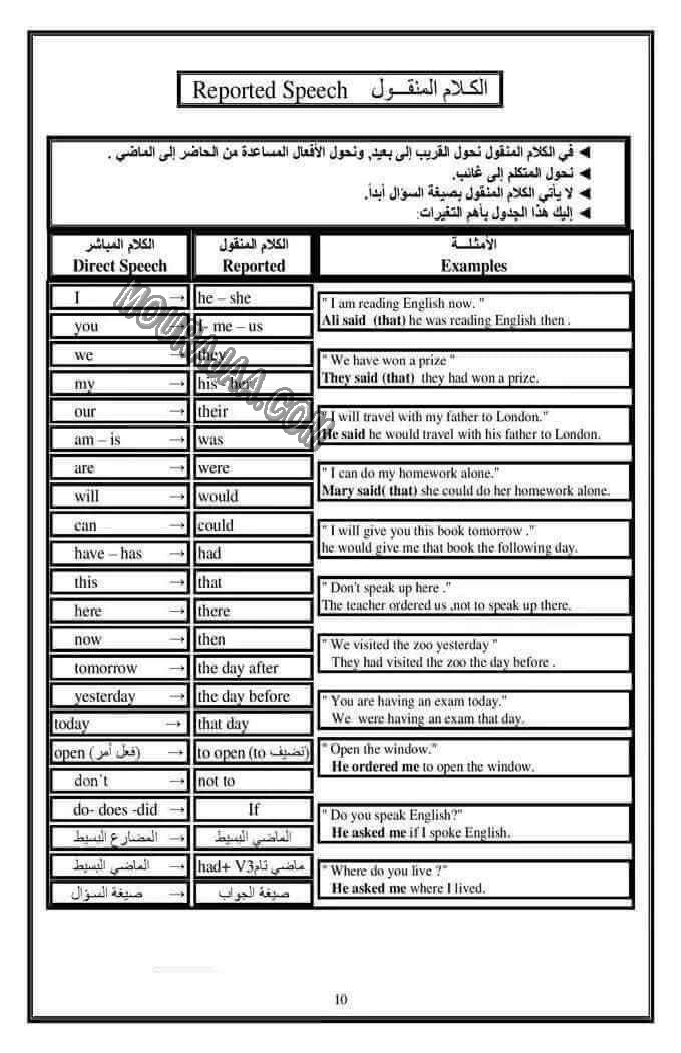 Reported Speech الكـلام المنقـــول
◄ في الكلام المنقول نحول القريب إلى بعيد, ونحول الأفعال المساعدة من الحاضر إلى الماضي .
◄ نحول المتكلم إلى غائب.
◄ لا يأتي الكلام المنقول بصيغة السؤال أبداً.
◄ إليك هذا الجدول بأهم التغيرات:
الكلام المباشر الكلام المنقول الأمثلـــة
Direct Speech Reported Examples
I → he – she
you → I- me – us
" I am reading English now. "
Ali said (that) he was reading English then .
we → they
my → his – her
" We have won a prize "
They said (that) they had won a prize.
our → their
am – is → was
" I will travel with my father to London."
He said he would travel with his father to London.
are → were
will → would
" I can do my homework alone."
Mary said( that) she could do her homework alone.
can → could
have – has → had
" I will give you this book tomorrow ."
he would give me that book the following day.
this → that
here → there
" Don't speak up here ."
The teacher ordered us ,not to speak up there.
now → then
tomorrow → the day after
" We visited the zoo yesterday "
They had visited the zoo the day before .
yesterday → the day before
today → that day
" You are having an exam today."
We were having an exam that day.
open (فعل أمر) → to open (to تضيف)
don`t → not to
" Open the window."
He ordered me to open the window.
do- does -did → If
المضارع البسيط → الماضي البسيط
" Do you speak English?"
He asked me if I spoke English.
الماضي البسيط → had+ V3 ماضي تام
صيغة السؤال → صيغة الجواب
" Where do you live ?"
He asked me where I lived.
MOURAJAA.COM
10